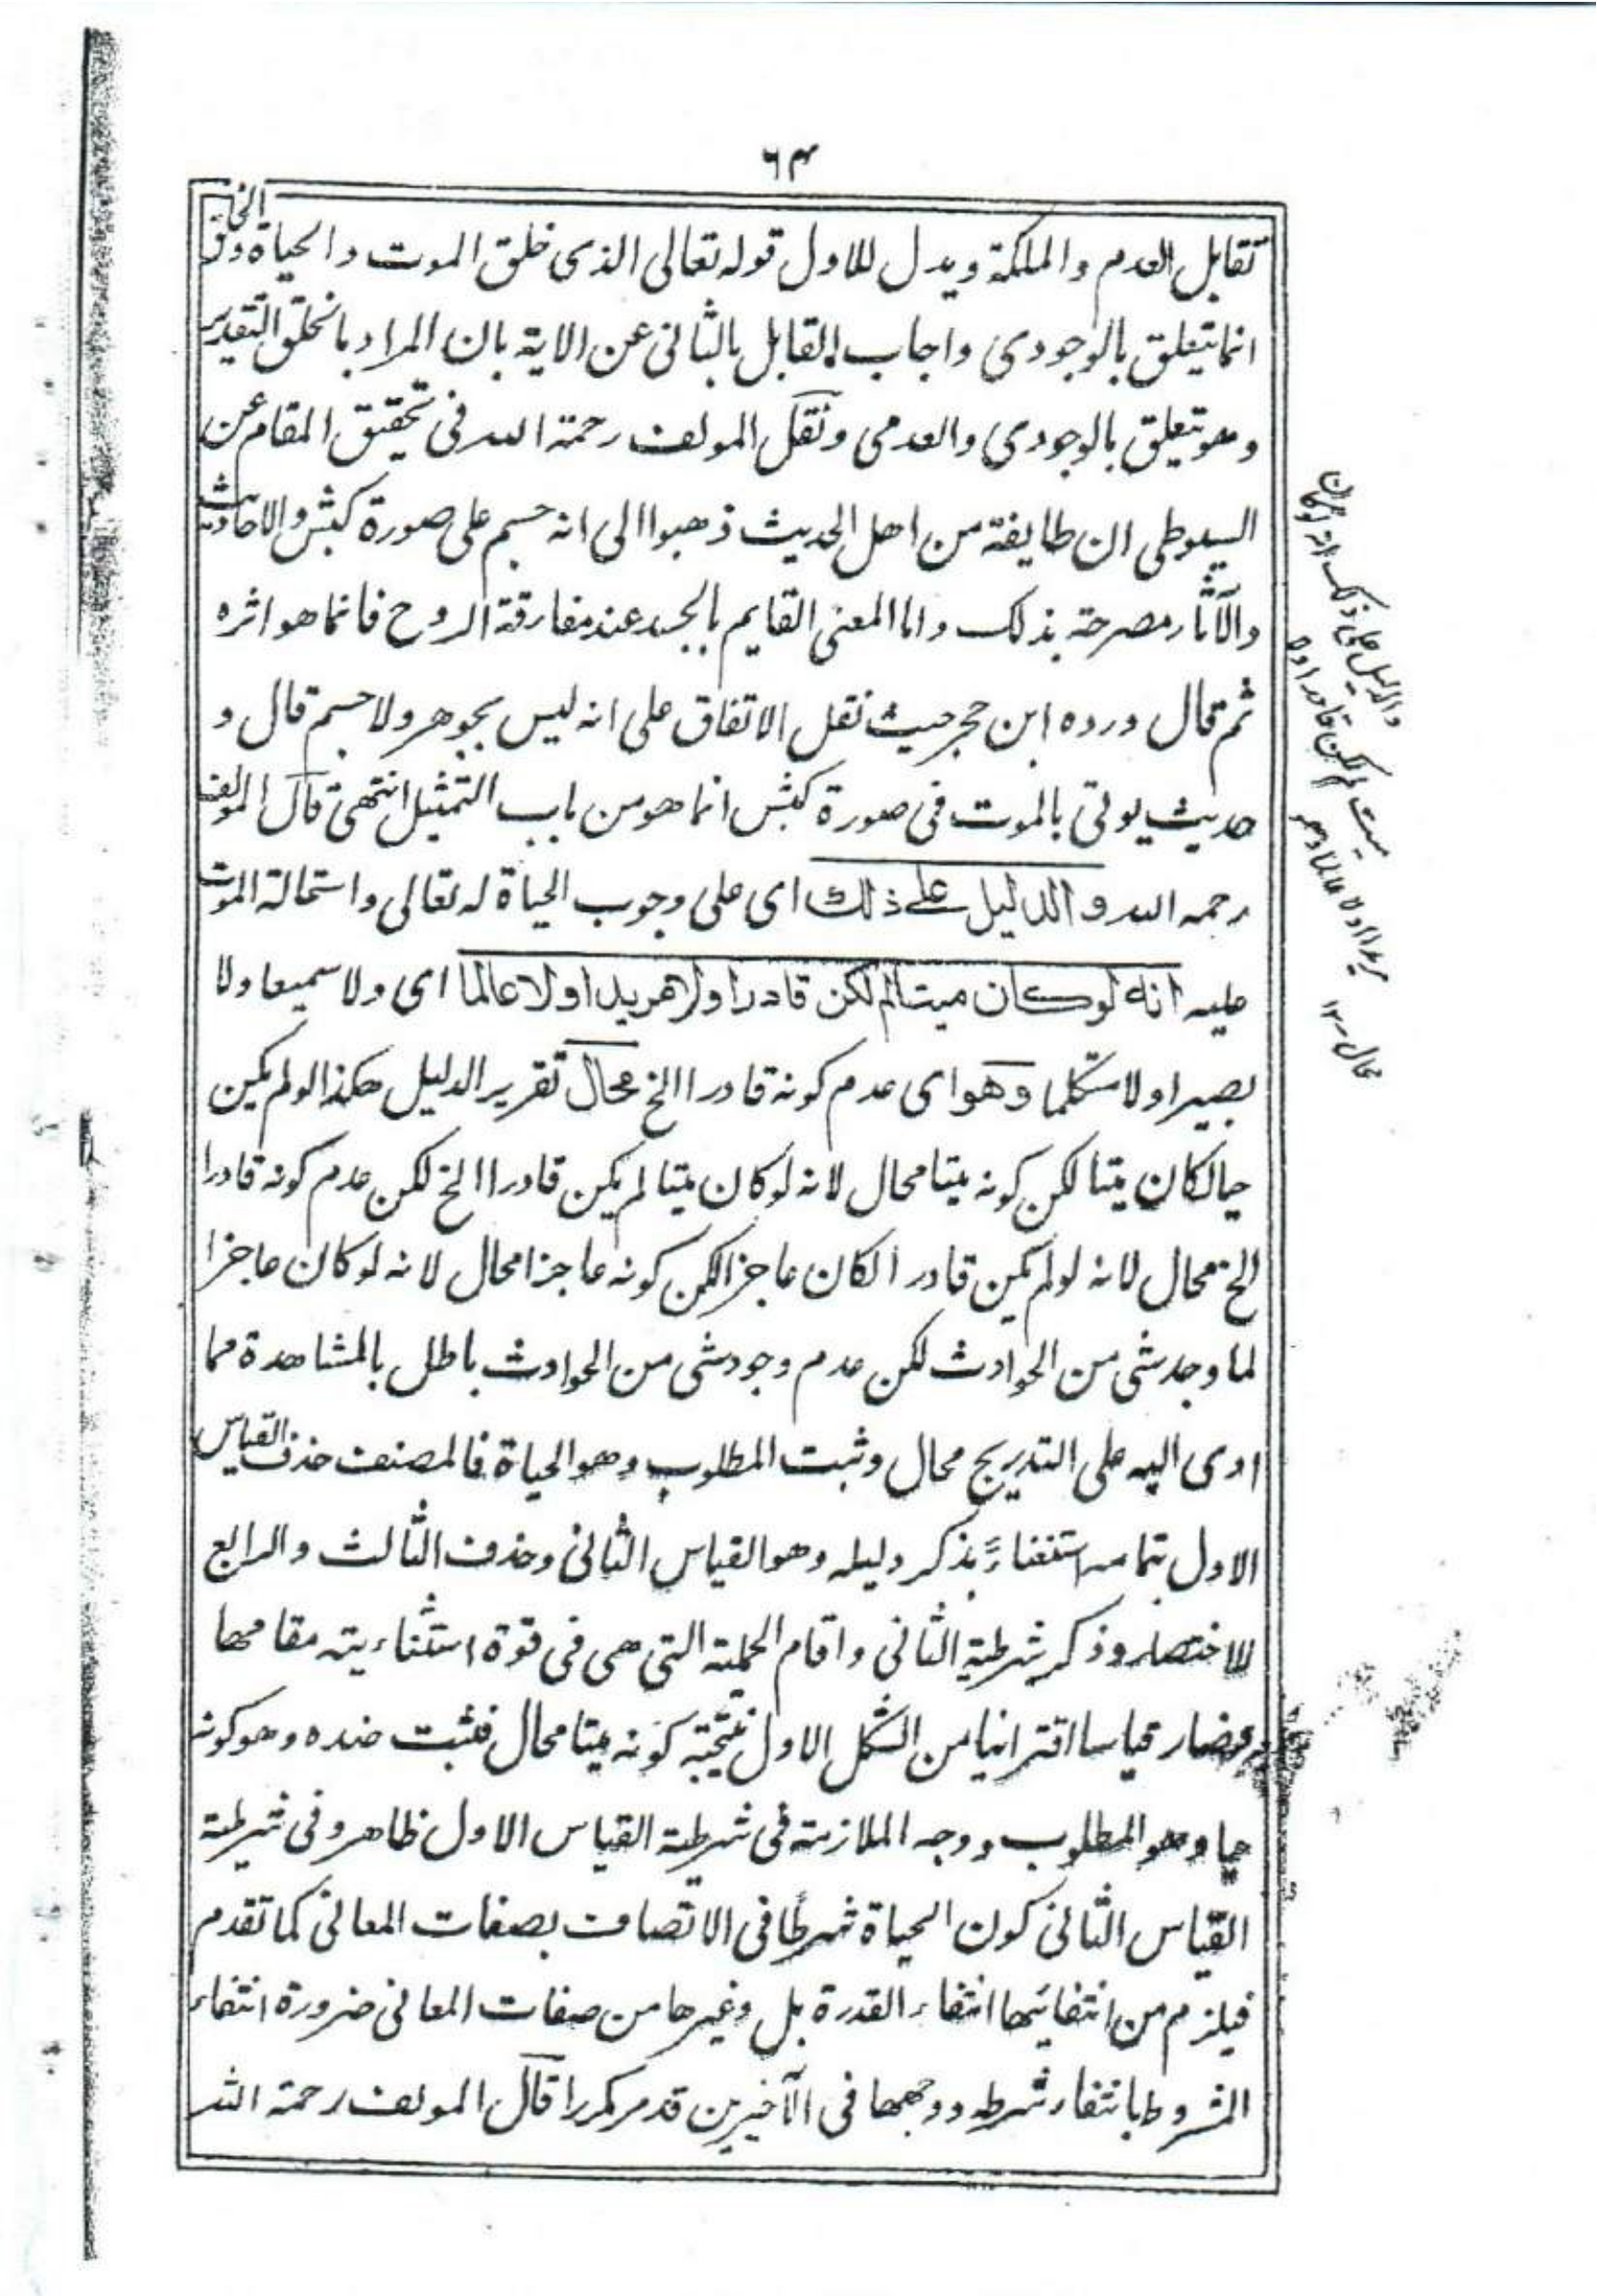 ٦٣
تقابل العدم والملكة ويدل للاول قوله تعالى الذى خلق الموت والحياة والخلق
انما يتعلق بالوجودى واجاب القايل بالثانى عن الاية بان المراد بالخلق التقدير
وهو يتعلق بالوجودى والعدمى ونقل المولف رحمة الله فى تحقيق المقام عن
السيوطى ان طايفة من اهل الحديث ذهبوا الى انه جسم على صورة كبش والاحاديث
والآثار مصرحة بذلك واما المعنى القايم بالجسد عند مفارقة الروح فانما هو اثره
ثم قال ورده ابن حجر حيث نقل الاتفاق على انه ليس بجوهر ولا جسم قال و
حديث يوتى بالموت فى صورة كبش انما هو من باب التمثيل انتهى قال المولف
رحمه الله والدليل على ذلك اى على وجوب الحياة له تعالى واستحالة الموت
عليه انه لو كان ميتا لم يكن قادرا ولا مريدا ولا عالما اى ولا سميعا ولا
بصيرا ولا متكلما وهو اى عدم كونه قادرا الخ محال تقرير الدليل هكذا لو لم يكن
حيا لكان ميتا لكن كونه ميتا محال لانه لو كان ميتا لم يكن قادرا الخ لكن عدم كونه قادرا
الخ محال لانه لو لم يكن قادرا لكان عاجزا لكن كونه عاجزا محال لانه لو كان عاجزا
لما وجد شى من الحوادث لكن عدم وجود شى من الحوادث باطل بالمشاهدة فما
ادى اليه على التدريج محال وثبت المطلوب وهو الحياة فالمصنف حذف القياس
الاول بتمامه استغناءً بذكر دليله وهو القياس الثانى وحذف الثالث والرابع
للاختصار وذكر شرطية الثانى واقام الحملية التى هى فى قوة استثناءيته مقامها
فصار قياسا اقترانيا من الشكل الاول نتيجته كونه ميتا محال فثبت ضده وهو كونه
حيا وهو المطلوب ووجه الملازمة فى شرطية القياس الاول ظاهر وفى شرطية
القياس الثانى كون الحياة شرطا فى الاتصاف بصفات المعانى كما تقدم
فيلزم من انتفائها انتفاء القدرة بل وغيرها من صفات المعانى ضرورة انتفاء
المشروط بانتفاء شرطه ووجهها فى الآخيرين قد مر مكررا قال المولف رحمة الله
والدليل على ذلك انه لو كان
ميت لم يكن قادرا ولا
مريدا ولا عالما وهو
محال ١٢